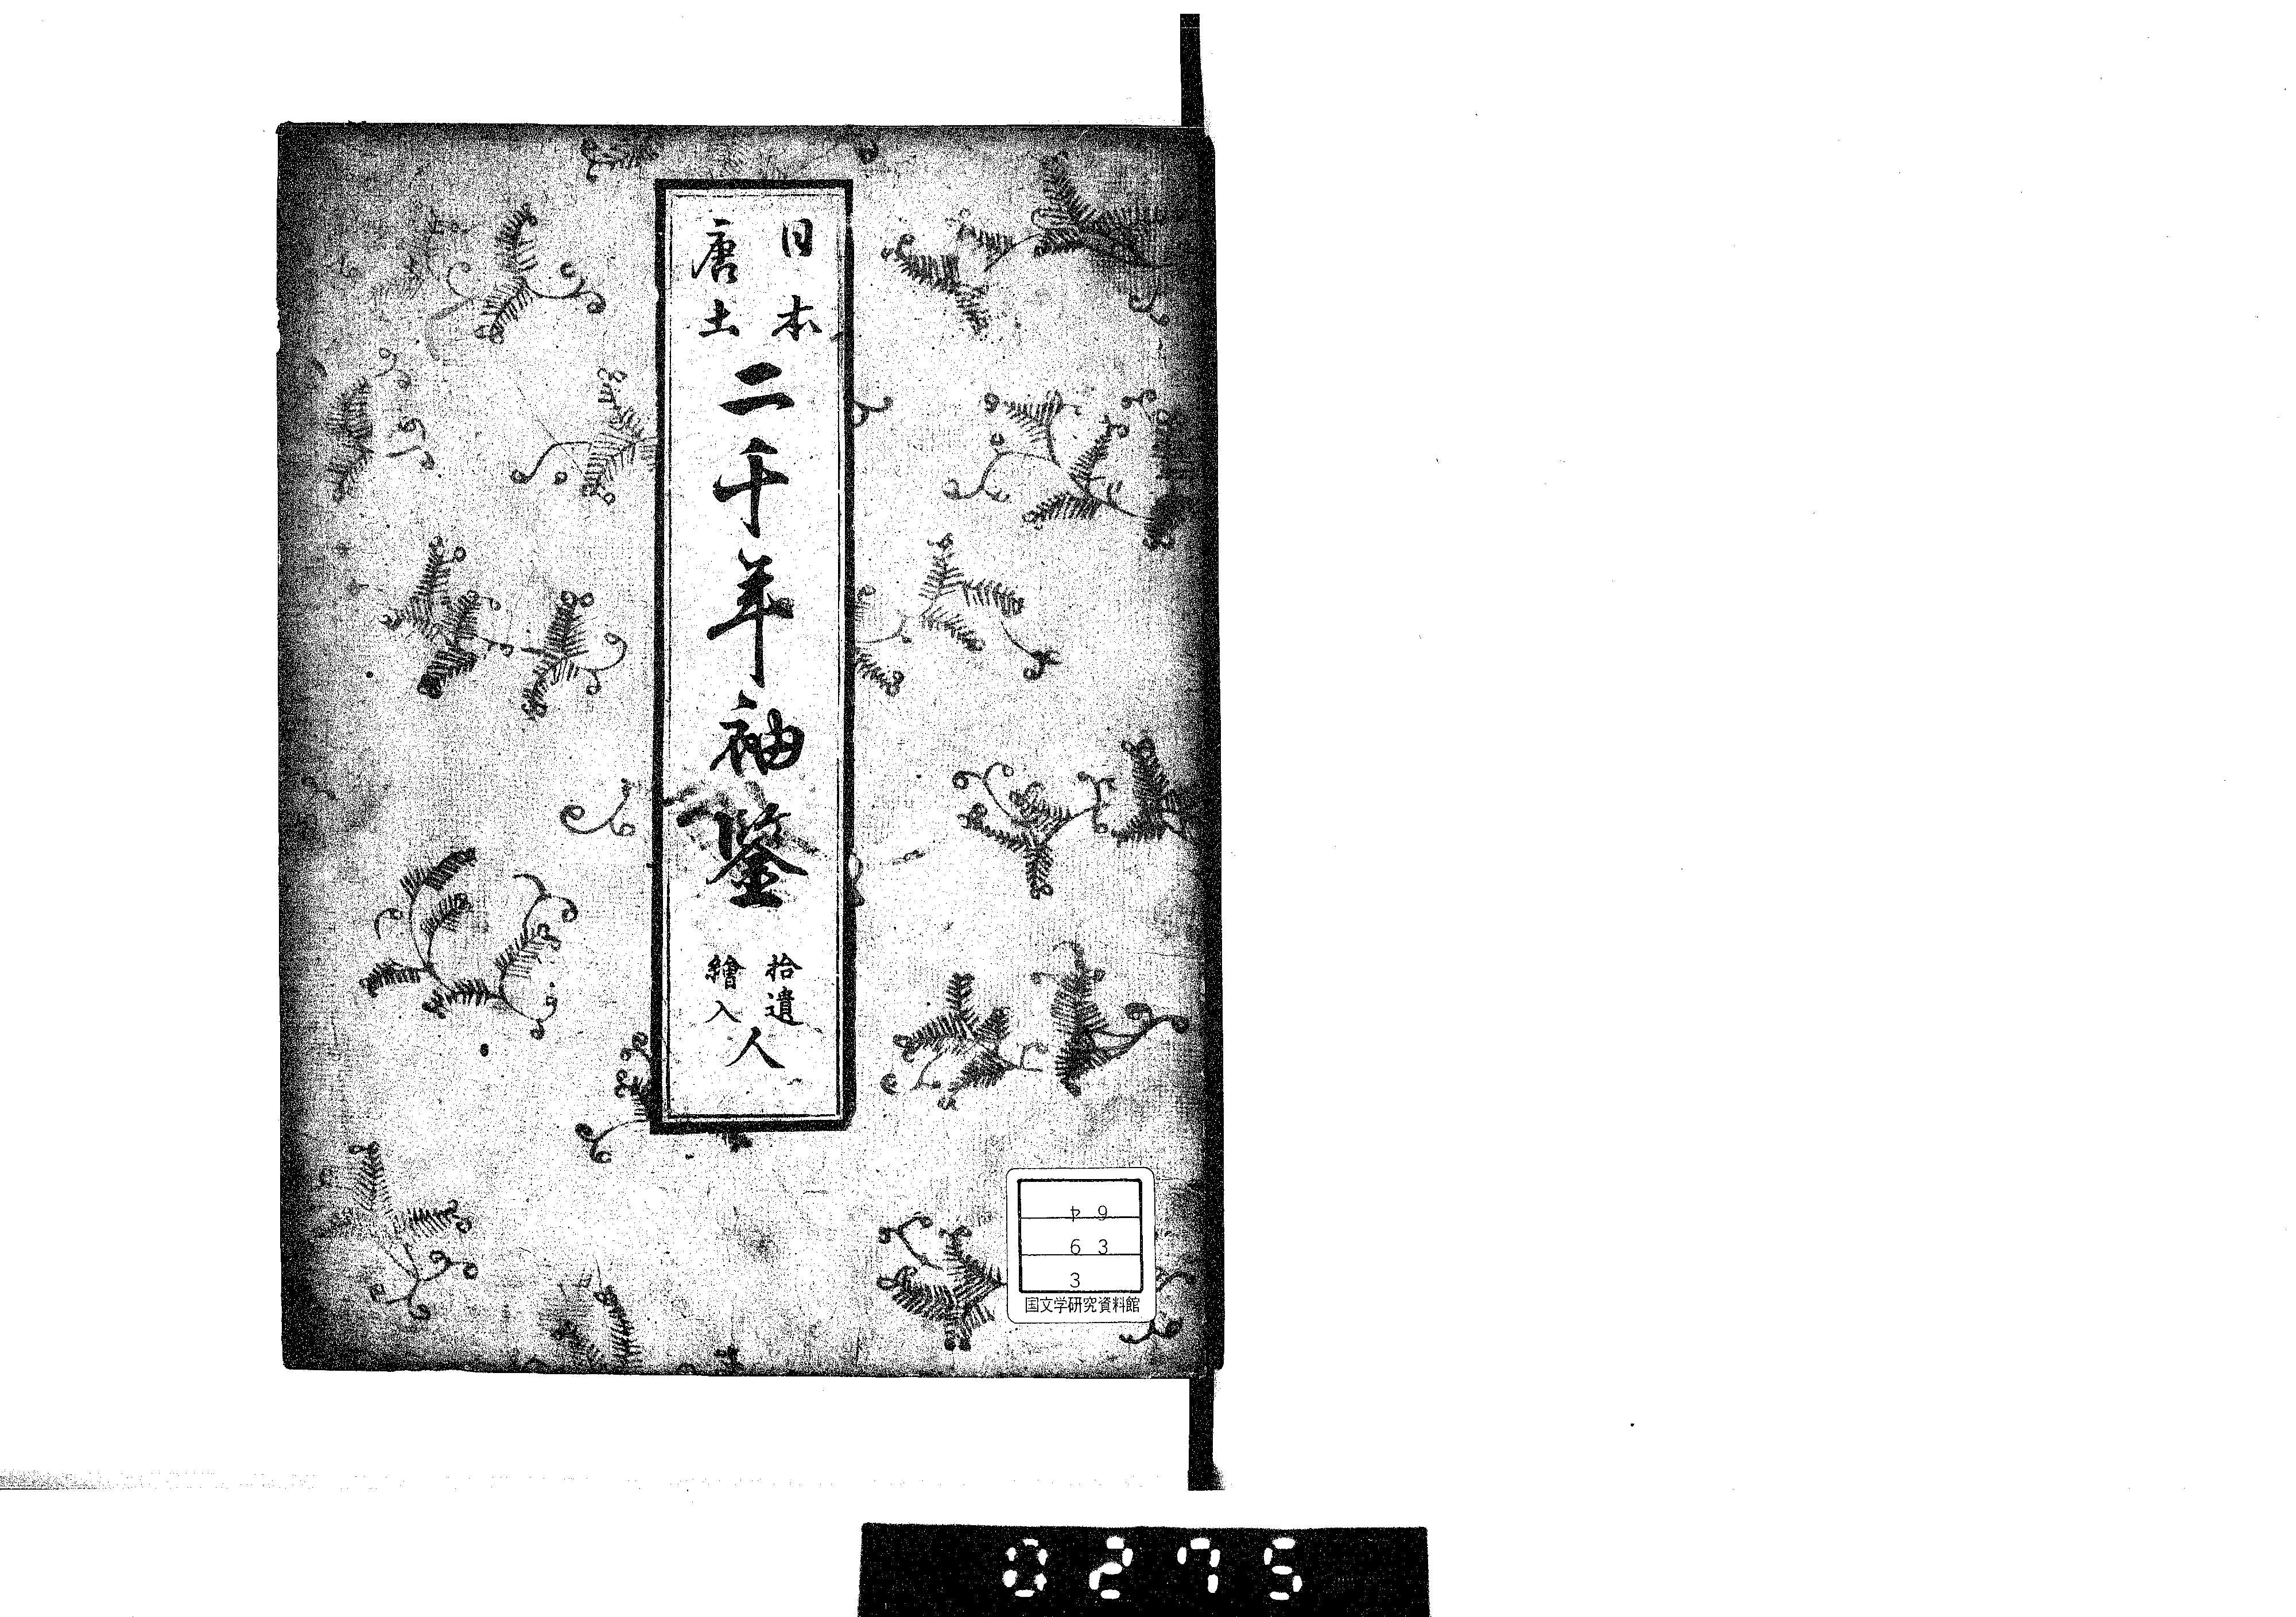 日本
唐土
二千年袖鑒
拾遺
繪入
人
ヤ 9
63
3
国文学研究資料館
0275